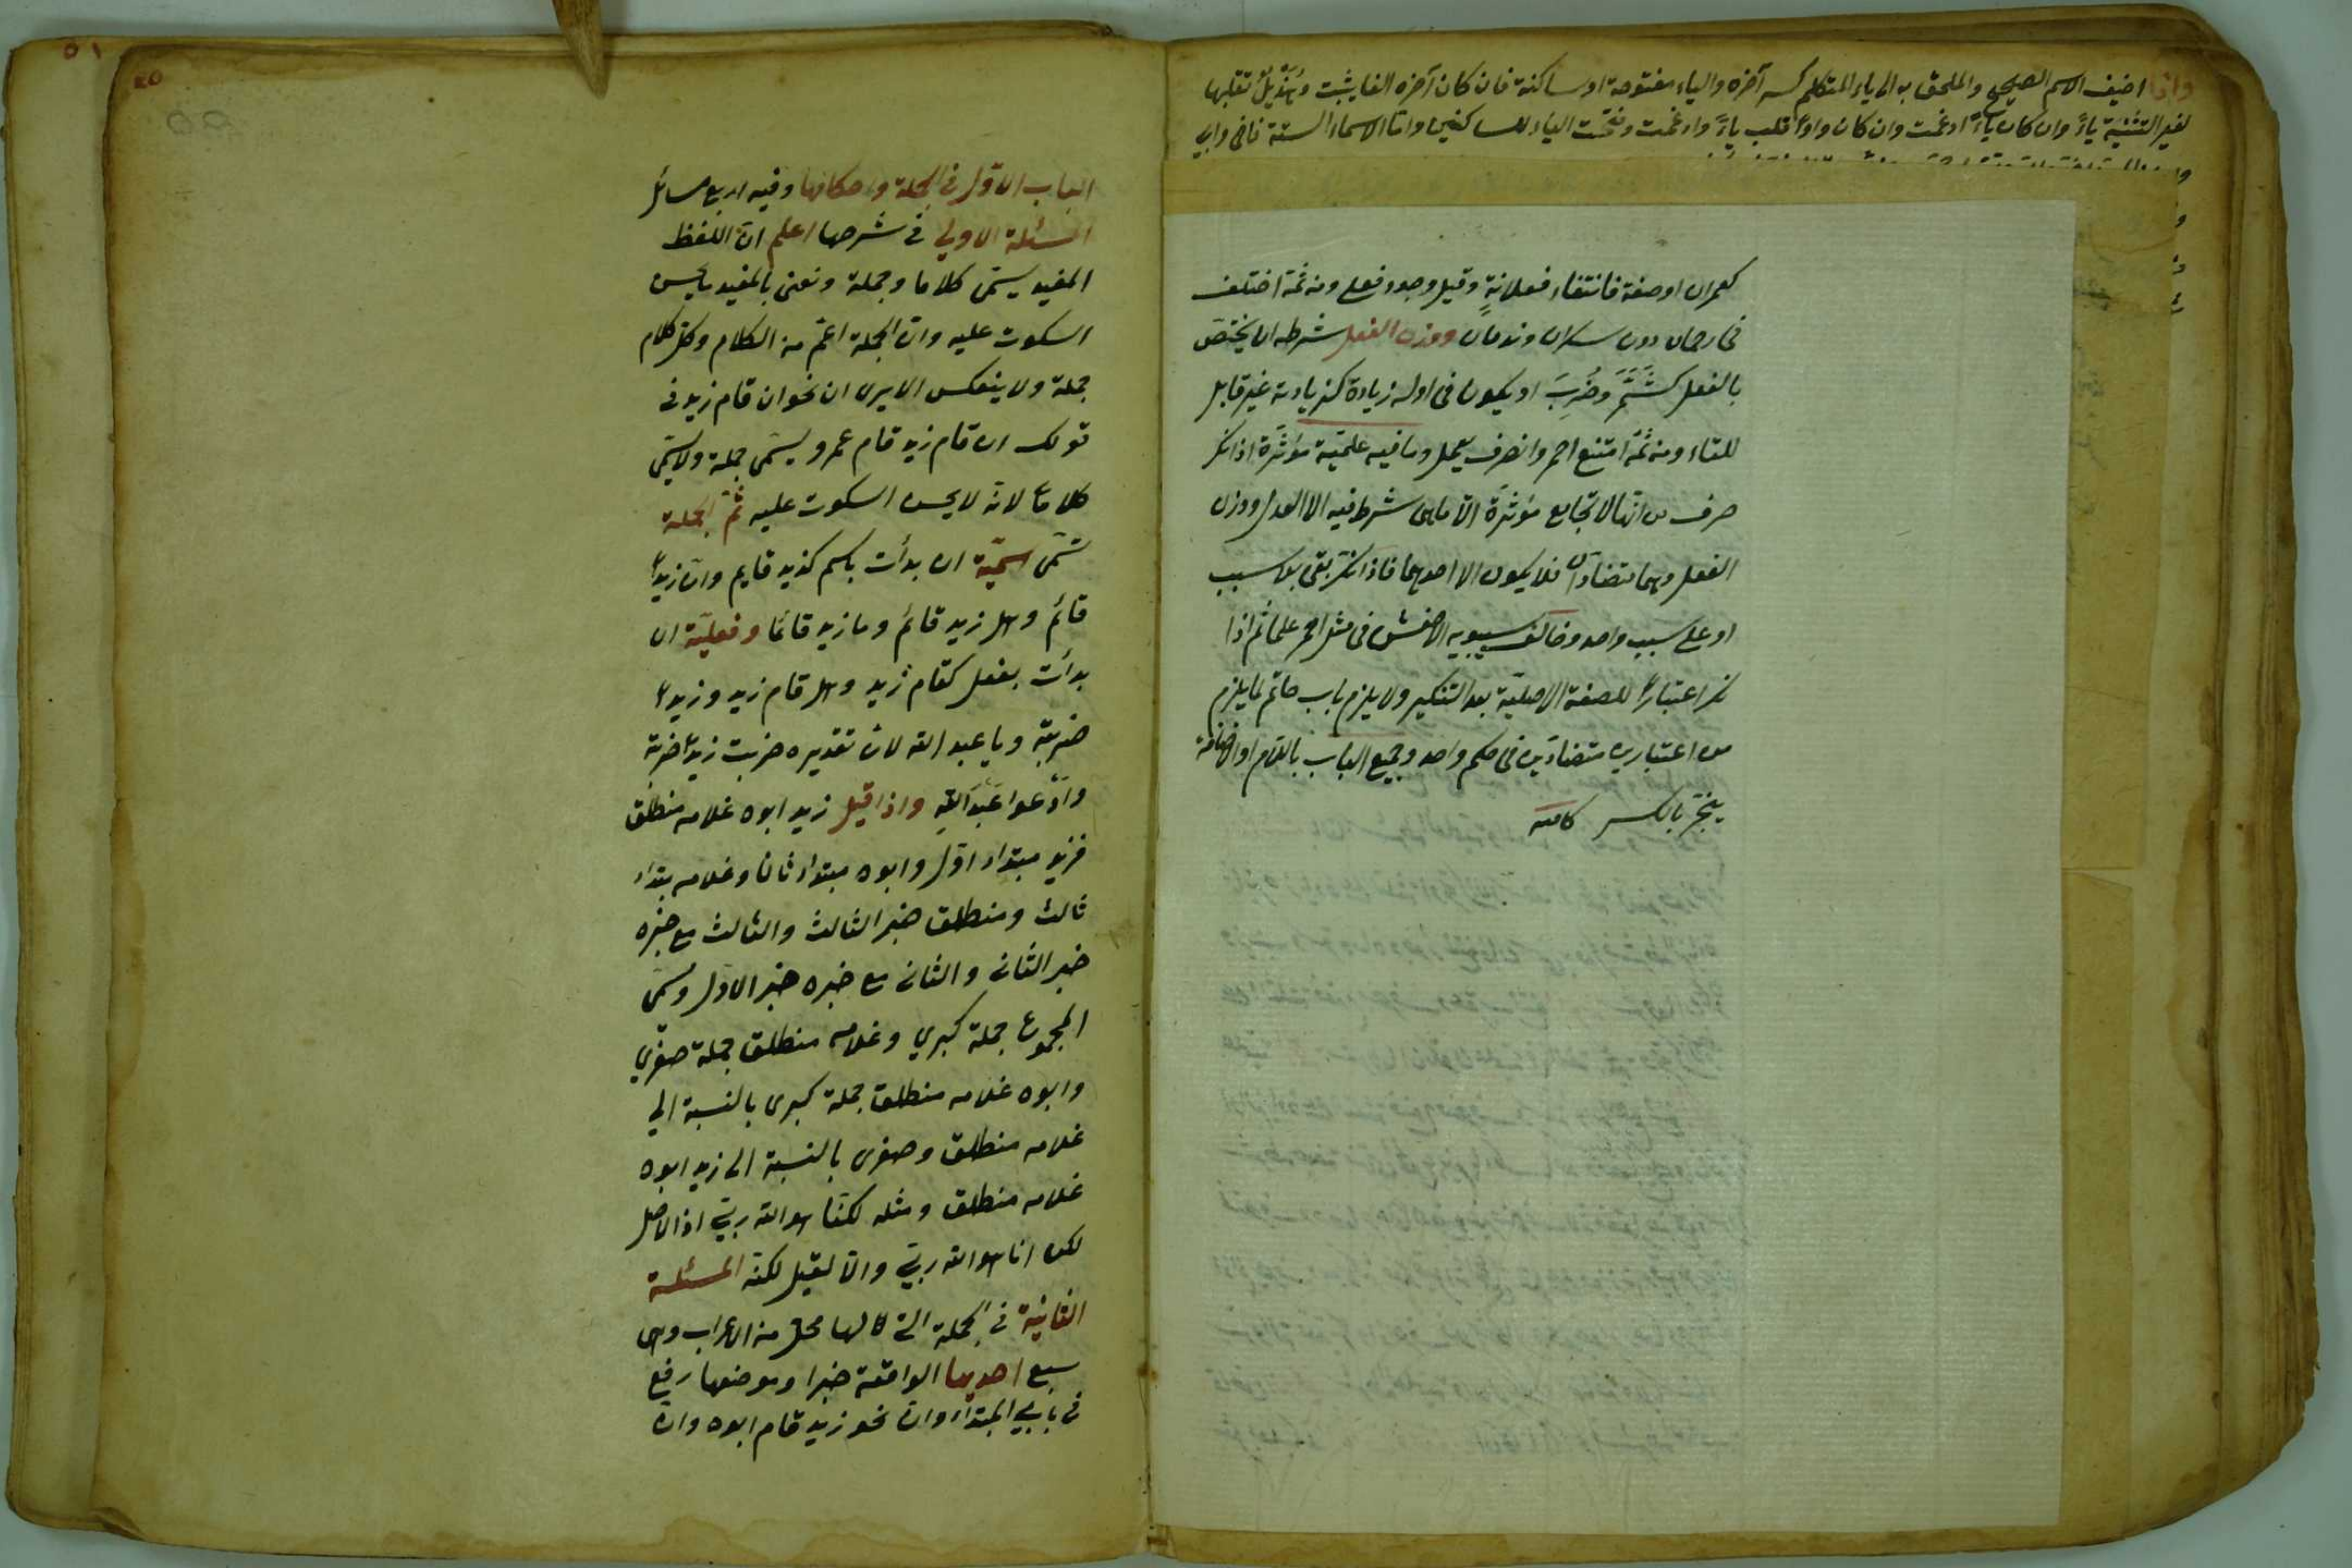 واذا اضيف الاسم الصحيح والملحق به الى ياء المتكلم كسر آخره والياء مفتوحة او ساكنة فان كان آخره الفا يثبت وهُذَيلٌ تقلبها
لغير التثنية ياءً وان كان ياءً ادغمت وان كان واواً قلب ياءً وادغمت وفتحت الياء للساكنين واما الاسماء الستة فاخى وابي
كعمران او صفة فانتفاء فعلانةٍ وقيل وجود فعلى ومن ثَمّة اختلف
فى رحمان دون سكران وندمانٍ ووزن الفعل شرطه ان يختصّ
بالفعل كشَمَّرَ وضُرِبَ او يكون فى اوله زيادة كزيادته غير قابل
للتاء ومن ثَمّة امتنع احمر وانصرف يعمل وما فيه علميّة مؤثّرة اذا نكر
صرف من انها لا تجامع مؤثرَة الاّ ماهى شرط فيه الا العدل ووزن
الفعل وهما متضادّان فلا يكون الا احدهما فاذا نكّر بقى بلا سبب
او على سبب واحد وخالف سيبويه الاخفش فى مثل احمر علما ثم اذا
نكر اعتباراً للصفة الاصليّة بعد التنكير ولا يلزم باب حاتم لما يلزم
من اعتبارين متضادّين فى حكم واحد وجميع الباب باللام او الاضافة
ينجرّ بالكسر
الباب الاوّل فى الجملة واحكامها وفيه اربع مسائل
المسئلة الاولي فى شرحها اعلم انّ اللفظ
المفيد يسمّى كلاما وجملة ونعنى بالمفيد ما يحسن
السكوت عليه وانّ الجملة اعمّ من الكلام وكل كلام
جملة ولا ينعكس الا يرى ان نحو ان قام زيد فى
قولك ان قام زيد قام عمرو يسمّى جملة ولا يسمّى
كلاما لانّه لا يحسن السكوت عليه ثمّ الجملة
تسمّى اسميّة ان بدأت باسم كزيد قايم وانّ زيداً
قائم وهل زيد قائم وما زيد قائما وفعليّة ان
بدأت بفعل كقام زيد وهل قام زيد وزيداً
ضربته ويا عبد الله لان تقديره ضربت زيداً ضربته
وادعوا عَبدَ اللهِ واذا قيل زيد ابوه غلامه منطلق
فزيد مبتداء اوّل وابوه مبتداء ثان وغلامه مبتداء
ثالث ومنطلق خبر الثالث والثالث مع خبره
خبر الثانى والثانى مع خبره خبر الاوّل ويسمّى
المجموع جملة كبري وغلامه منطلق جملة صغري
وابوه غلامه منطلق جملة كبرى بالنسبة الي
غلامه منطلق وصغرى بالنسبة الى زيد ابوه
غلامه منطلق ومثله لكنّا هو الله ربّي اذ الاصل
لكن انا هو الله ربّي والاّ لقيل لكنه المسئلة
الثانية فى الجملة التى لها محل من الاعراب وهى
سبع احديها الواقعة خبرا وموضعها رفع
فى بابي المبتداء وانّ نحو زيد قام ابوه وانّ